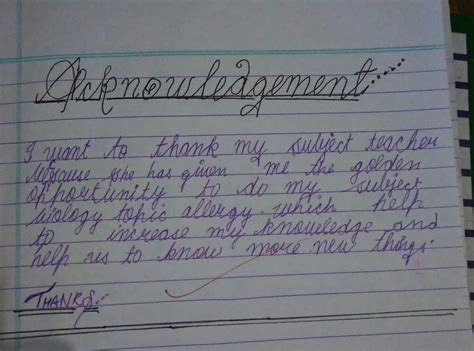 Acknowledgement.....
I want to thank my subject teacher
because she has given me the golden
opportunity to do my subject
biology topic allergy. which help
to increase my knowledge and
help us to know more new things.
THANKS...